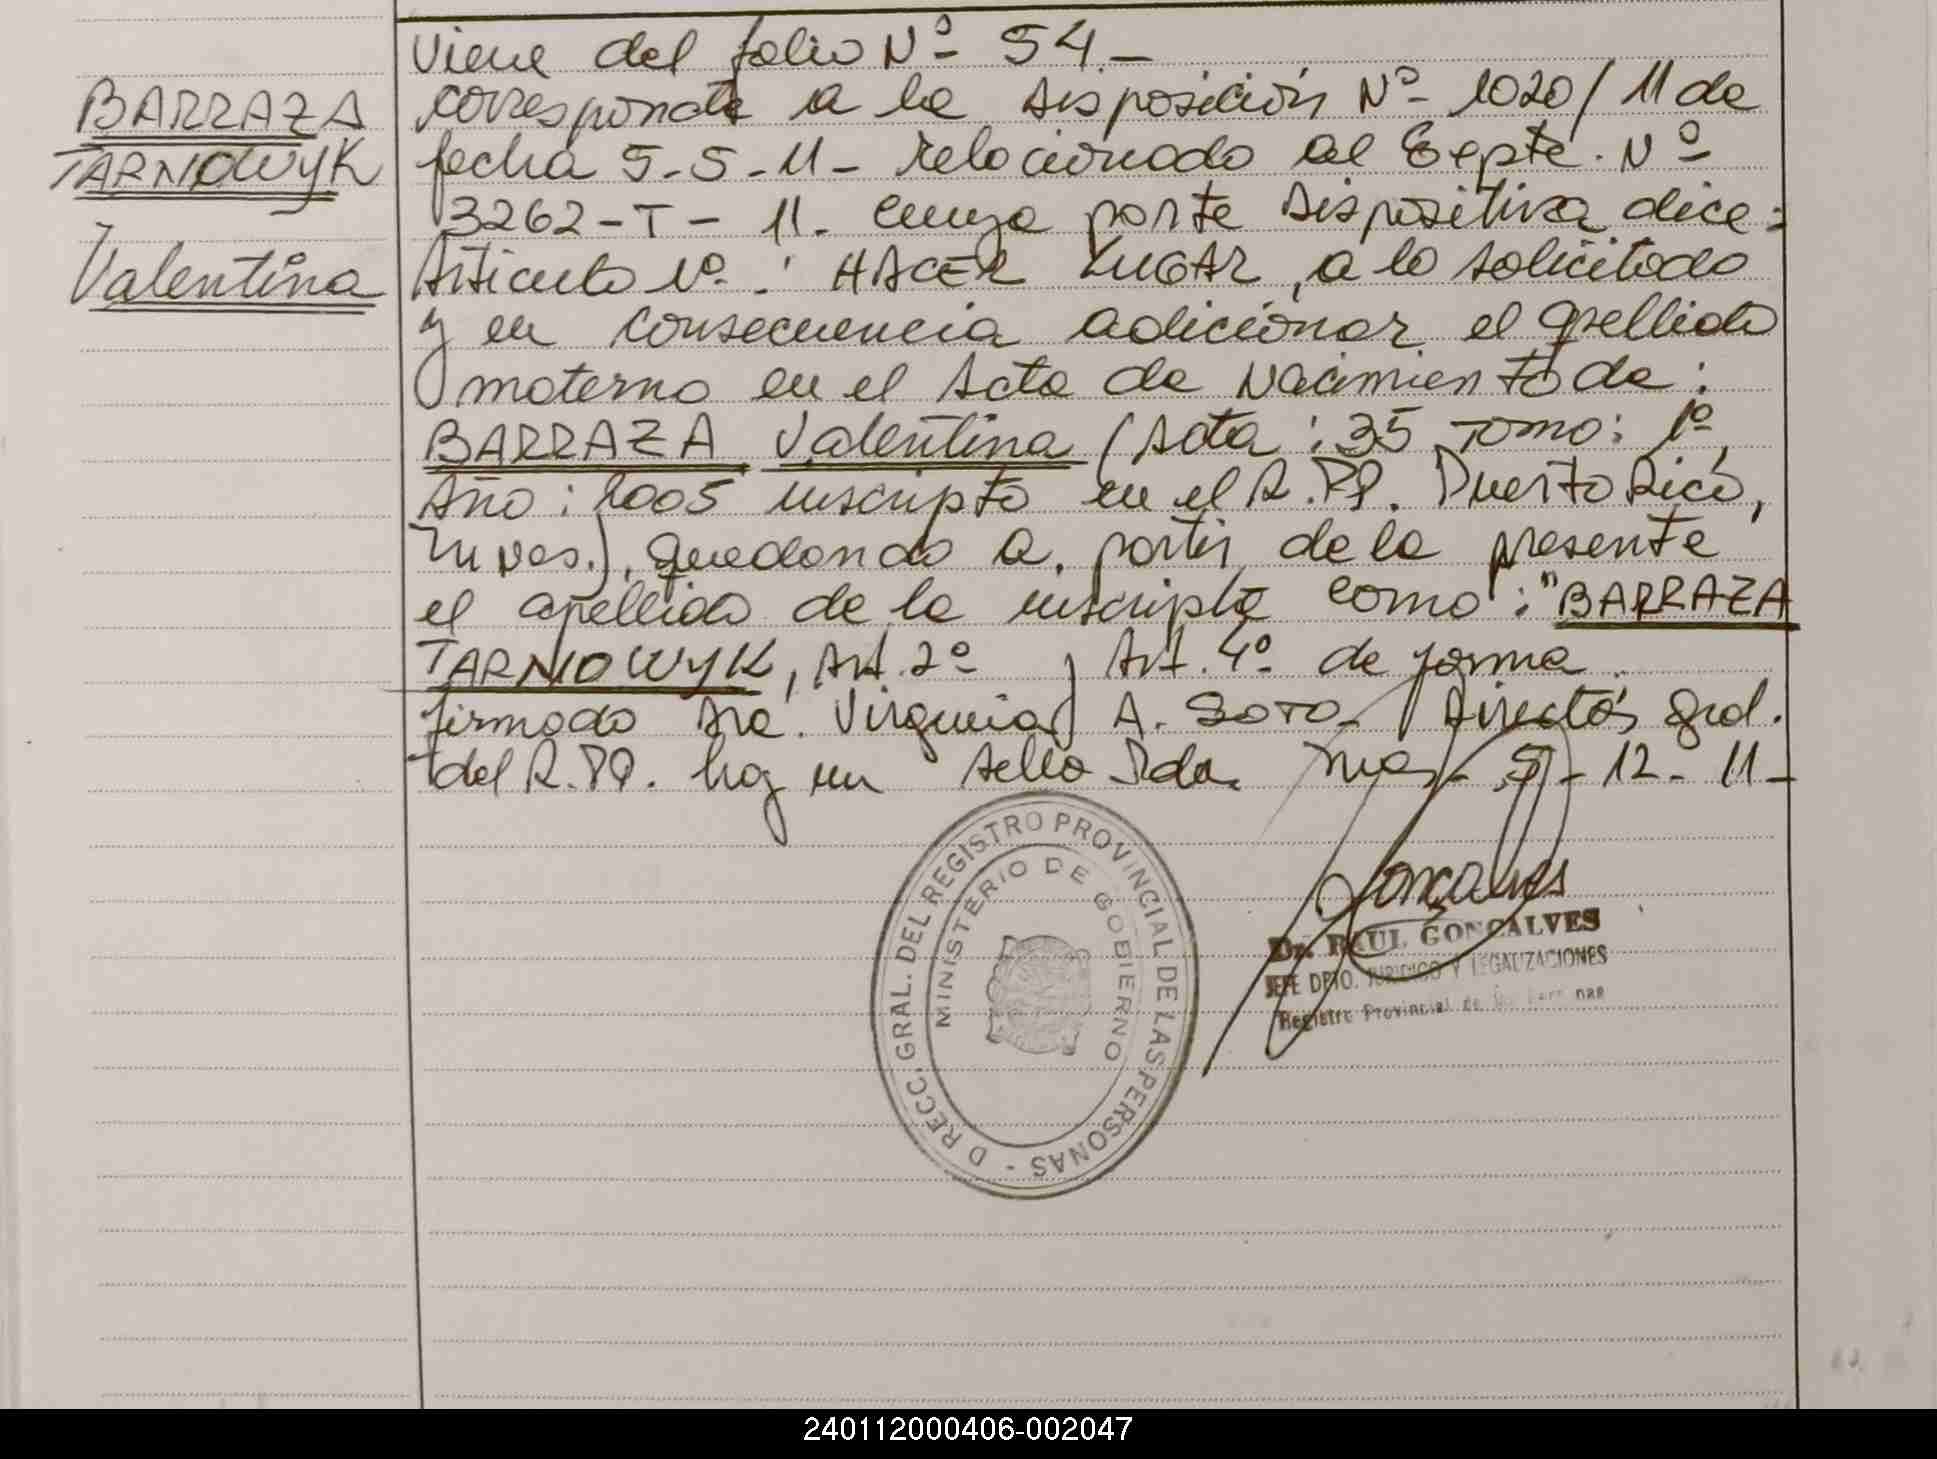 Viene del folio Nº 54.-
BARRAZA
TARNOWYK
Valentina
corresponde a la Disposición Nº 1020/11 de
fecha 5-5-11- relacionado al Expte. Nº
3262-T-11. cuya parte dispositiva dice:
Artículo 1º: HACER LUGAR, a lo solicitado
y en consecuencia adicionar el apellido
materno en el Acta de Nacimiento de:
BARRAZA Valentina (Acta: 35 Tomo: 1º
Año: 2005 inscripto en el R.PP. Puerto Rico,
Mnes.), quedando a partir de la presente
el apellido de la inscripta como: "BARRAZA
TARNOWYK, Art. 2º y Art. 4º de forma
firmado Sra. Virginia A. SOTO- Directora Gral.
del R.PP. hay un sello Pdas. Mnes- 5-12-11-
DIRECC. GRAL. DEL REGISTRO PROVINCIAL DE LAS PERSONAS -
MINISTERIO DE GOBIERNO
Goncalves
Dr. RAUL GONCALVES
JEFE DPTO. JURIDICO Y LEGALIZACIONES
Registro Provincial de
240112000406-002047